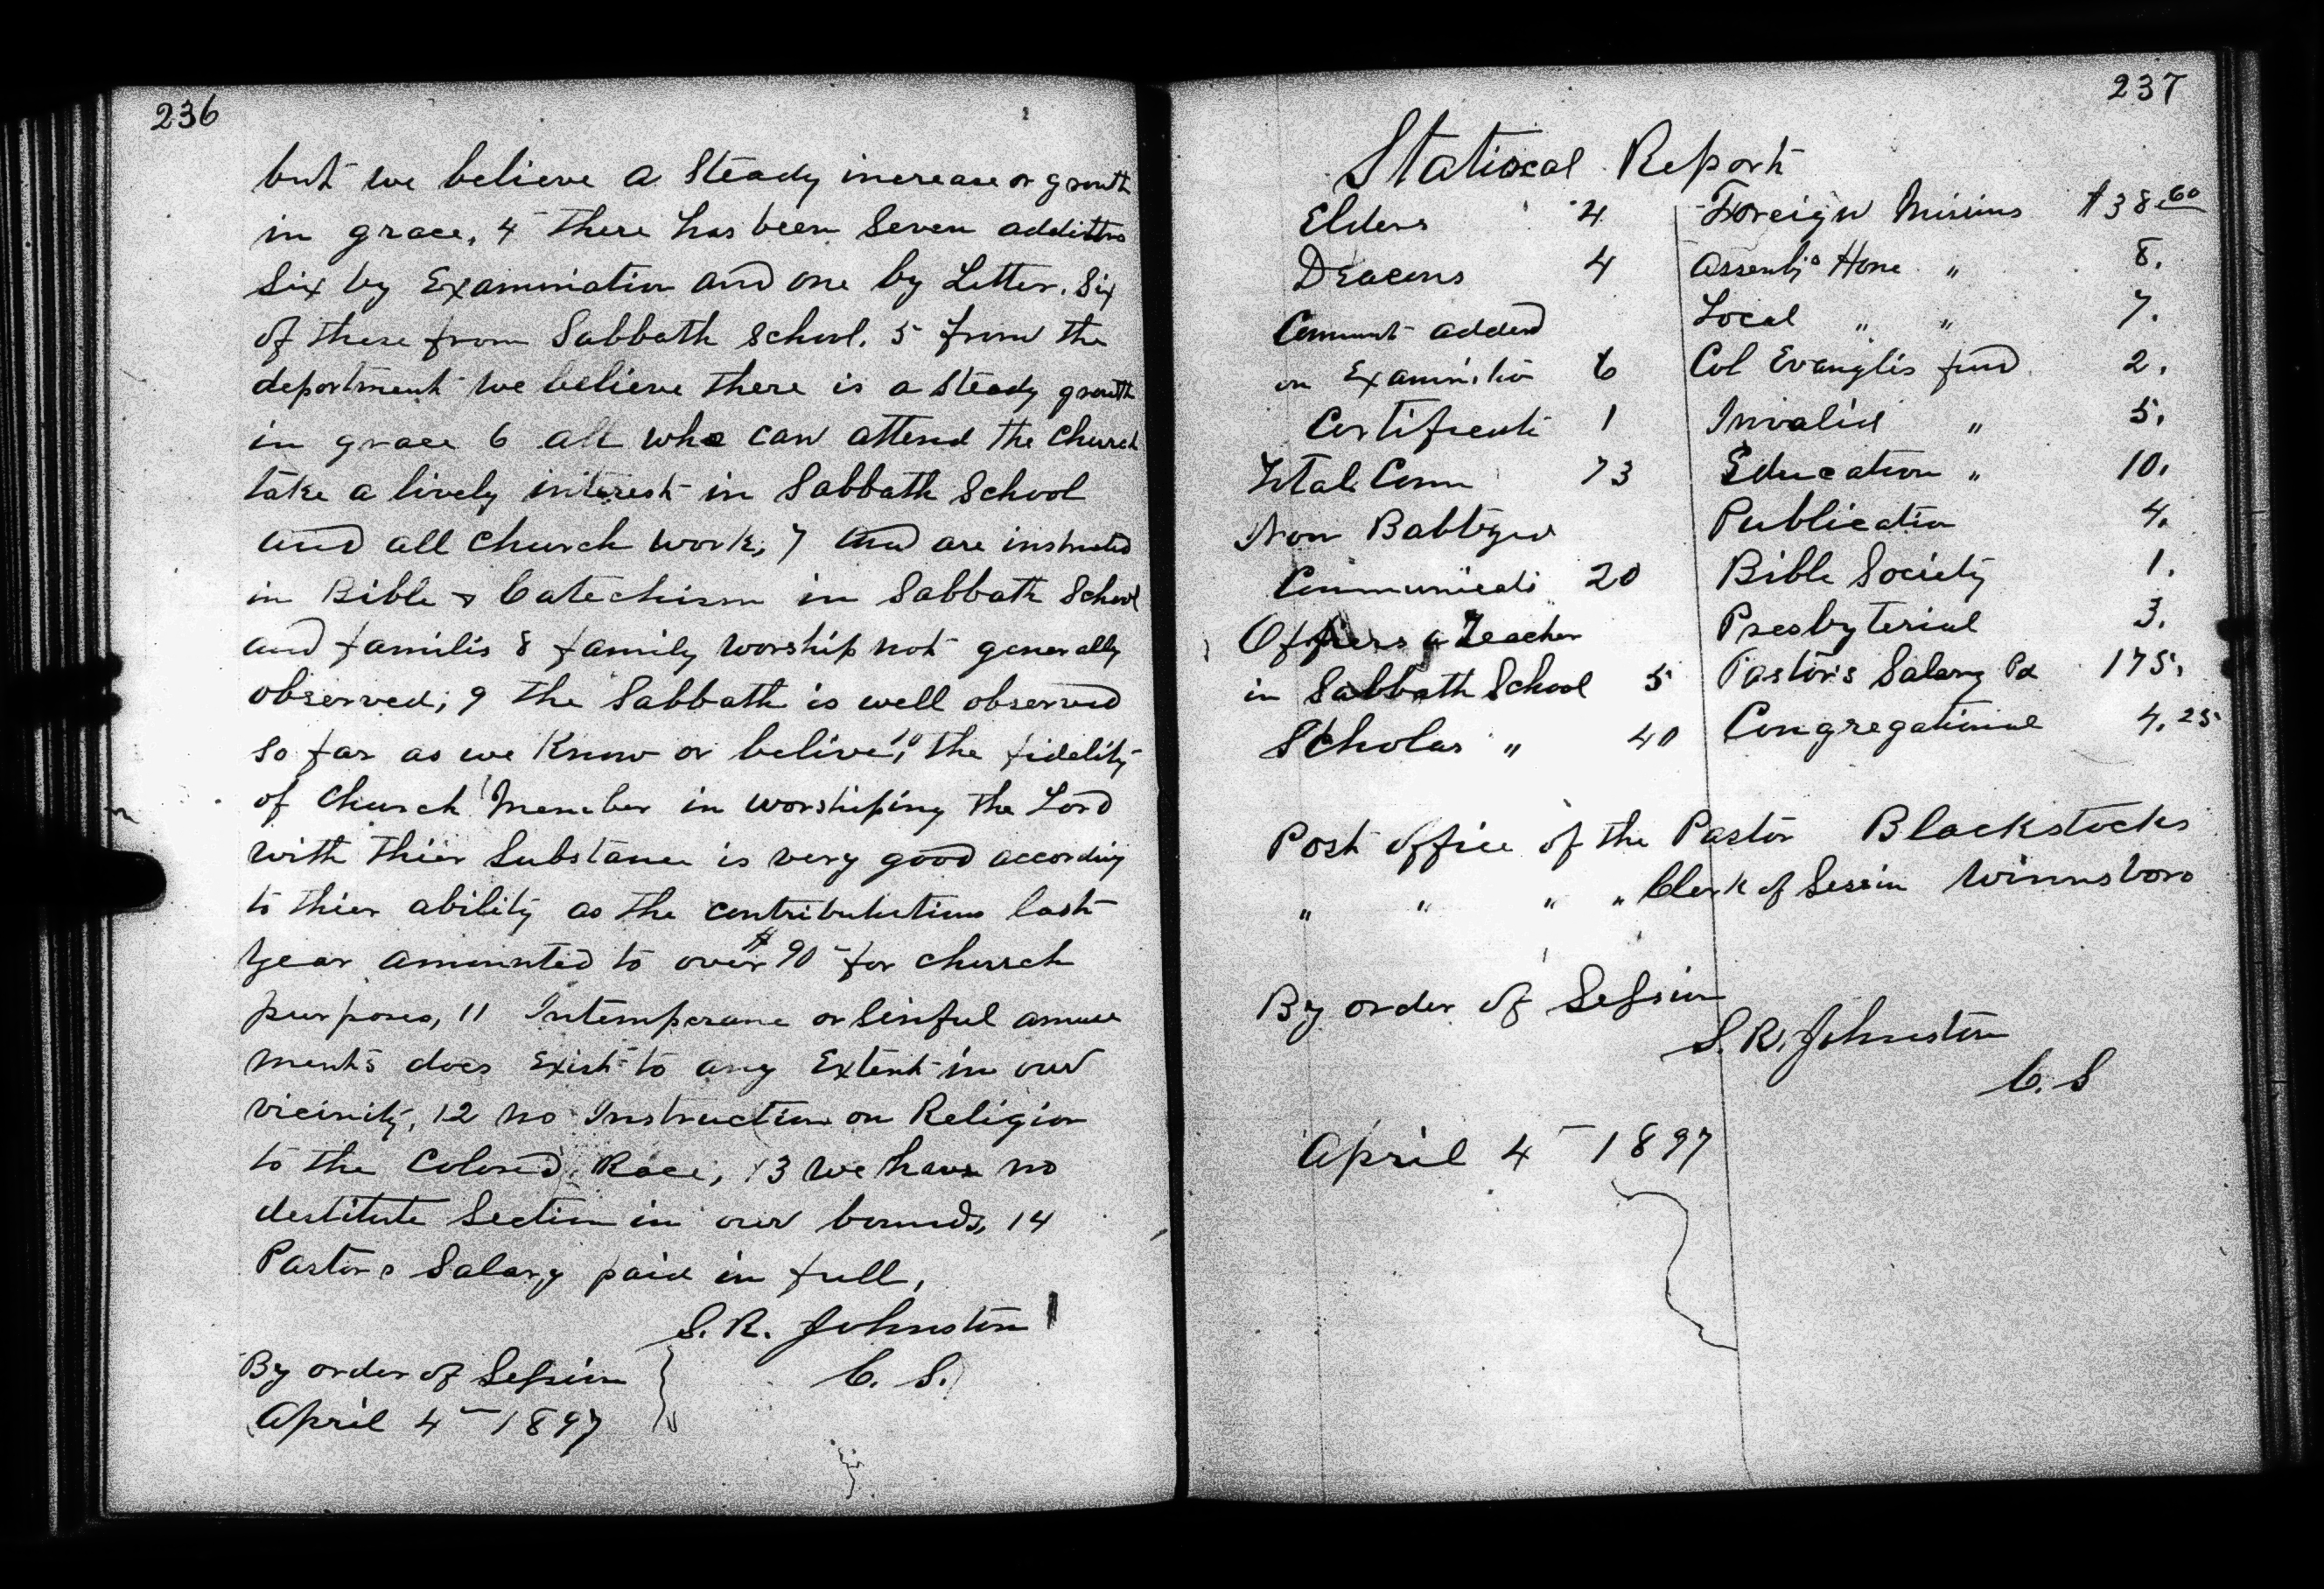 236
but we believe a Steady increase or growth
in grace, 4 there has been Seven additions
Six by Examination and one by Letter. Six
of these from Sabbath School. 5 from the
department we believe there is a Steady growth
in grace 6 all who can attend the church
take a lively interest in Sabbath School
and all church work, 7 and are instructed
in Bible & Catechism in Sabbath School
and familis 8 family worship not generally
observed, 9 the Sabbath is well observed
so far as we Know or belive, 10 the fidelity
of church Member in worshiping the Lord
with thier Substance is very good according
to thier ability as the contribututions last
year amounted to over $90 for church
purposes, 11 Intemperane or Sinful amuse
ments does Exist to any Extent in our
vicinity, 12 no Instruction on Religion
to the Colored Race, 13 we have no
destitute Section in our bounds, 14
Pastors Salary paid in full,
S. R. Johnston
By order of Session
C. S.
April 4 1897
237
Statiscal Report
Elders 4 Foreign Missions $38.60
Deacons 4 Assembs Home " 8.
Communt added Local " " 7.
on Examinition 6 Col Evanglis fund 2.
Certificate 1 Invalid " 5.
Total Comm 73 Education " 10.
Non Babtized Publication 4.
Communicats 20 Bible Society 1.
Officers & Teacher Presbyterial 3.
in Sabbath School 5 Pastor's Salary Pd 175.
Scholar " 40 Congregational 4.25
Post office of the Pastor Blackstocks
" " " " Clerk of Session Winnsboro
By order of Session
S. R. Johnston
C. S
April 4 1897